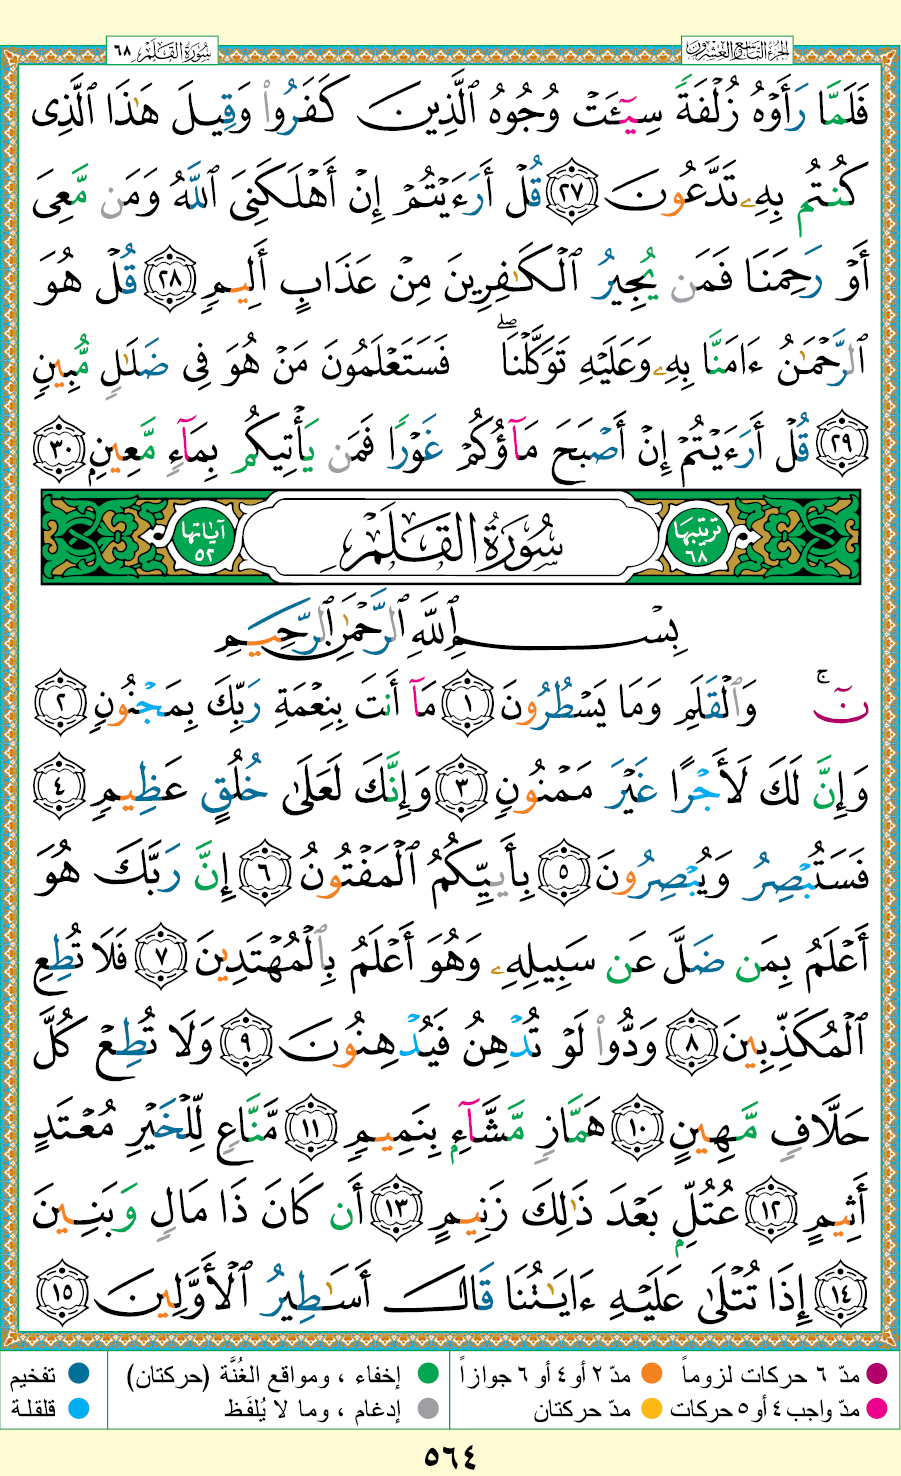 سُورَةُ القَلَمْ ٦٨
الجزء التاسع العشرون
فَلَمَّا رَأَوْهُ زُلْفَةً سِيٓـَٔتْ وُجُوهُ ٱلَّذِينَ كَفَرُوا۟ وَقِيلَ هَـٰذَا ٱلَّذِى
كُنتُم بِهِۦ تَدَّعُونَ ٢٧ قُلْ أَرَءَيْتُمْ إِنْ أَهْلَكَنِىَ ٱللَّهُ وَمَن مَّعِىَ
أَوْ رَحِمَنَا فَمَن يُجِيرُ ٱلْكَـٰفِرِينَ مِنْ عَذَابٍ أَلِيمٍ ٢٨ قُلْ هُوَ
ٱلرَّحْمَـٰنُ ءَامَنَّا بِهِۦ وَعَلَيْهِ تَوَكَّلْنَا ۖ فَسَتَعْلَمُونَ مَنْ هُوَ فِى ضَلَـٰلٍ مُّبِينٍ
٢٩ قُلْ أَرَءَيْتُمْ إِنْ أَصْبَحَ مَآؤُكُمْ غَوْرًا فَمَن يَأْتِيكُم بِمَآءٍ مَّعِينٍۭ ٣٠
ترتيبها ٦٨ سُورَةُ القَلَمْ آياتها ٥٢
بِسْمِ ٱللَّهِ ٱلرَّحْمَـٰنِ ٱلرَّحِيمِ
نٓ ۚ وَٱلْقَلَمِ وَمَا يَسْطُرُونَ ١ مَآ أَنتَ بِنِعْمَةِ رَبِّكَ بِمَجْنُونٍ ٢
وَإِنَّ لَكَ لَأَجْرًا غَيْرَ مَمْنُونٍ ٣ وَإِنَّكَ لَعَلَىٰ خُلُقٍ عَظِيمٍ ٤
فَسَتُبْصِرُ وَيُبْصِرُونَ ٥ بِأَييِّكُمُ ٱلْمَفْتُونُ ٦ إِنَّ رَبَّكَ هُوَ
أَعْلَمُ بِمَن ضَلَّ عَن سَبِيلِهِۦ وَهُوَ أَعْلَمُ بِٱلْمُهْتَدِينَ ٧ فَلَا تُطِعِ
ٱلْمُكَذِّبِينَ ٨ وَدُّوا۟ لَوْ تُدْهِنُ فَيُدْهِنُونَ ٩ وَلَا تُطِعْ كُلَّ
حَلَّافٍ مَّهِينٍ ١٠ هَمَّازٍ مَّشَّآءٍۭ بِنَمِيمٍ ١١ مَّنَّاعٍ لِّلْخَيْرِ مُعْتَدٍ
أَثِيمٍ ١٢ عُتُلٍّۭ بَعْدَ ذَٰلِكَ زَنِيمٍ ١٣ أَن كَانَ ذَا مَالٍ وَبَنِينَ
١٤ إِذَا تُتْلَىٰ عَلَيْهِ ءَايَـٰتُنَا قَالَ أَسَـٰطِيرُ ٱلْأَوَّلِينَ ١٥
مدّ ٦ حركات لزوماً مدّ ٢ أو ٤ أو ٦ جوازاً إخفاء ، ومواقع الغُنَّة (حركتان) تفخيم
مدّ واجب ٤ أو ٥ حركات مدّ حركتان إدغام ، وما لا يُلفَظ قلقلة
٥٦٤